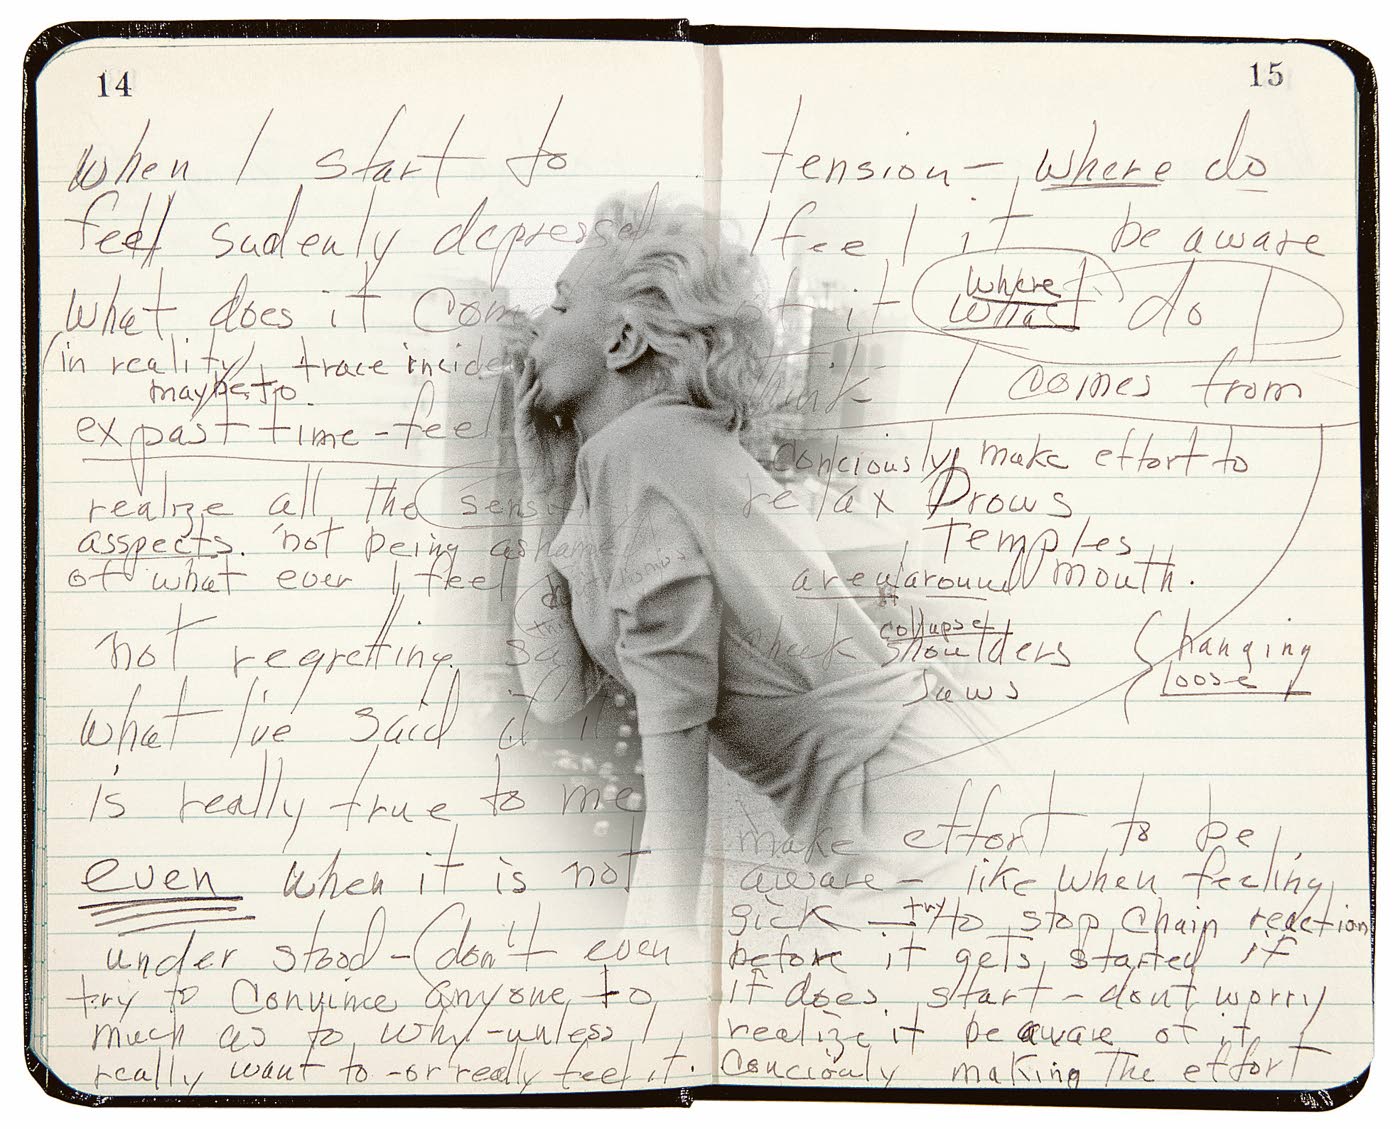 14
when I start to
feel suddenly depressed
what does it come
(in reality) trace incide
maybe to
ex past time - feel
realize all the sensi
asspects. not being ashame
of what ever I feel
not regretting sa
what I've said it
is really true to me
even when it is not
under stood - (don't even
try to convince anyone to
much as to why - unless I
really want to - or really feel it.
15
tension - where do
I feel it be aware
of it where what do I
think I comes from
conciously make effort to
relax Brows
Temples
area around mouth.
cheek collapse shoulders (hanging
Jaws loose
make effort to be
aware - like when feeling
sick - try to stop chain reaction
before it gets started if
if does start - dont worry
realize it be aware of it
conciouly making the effort